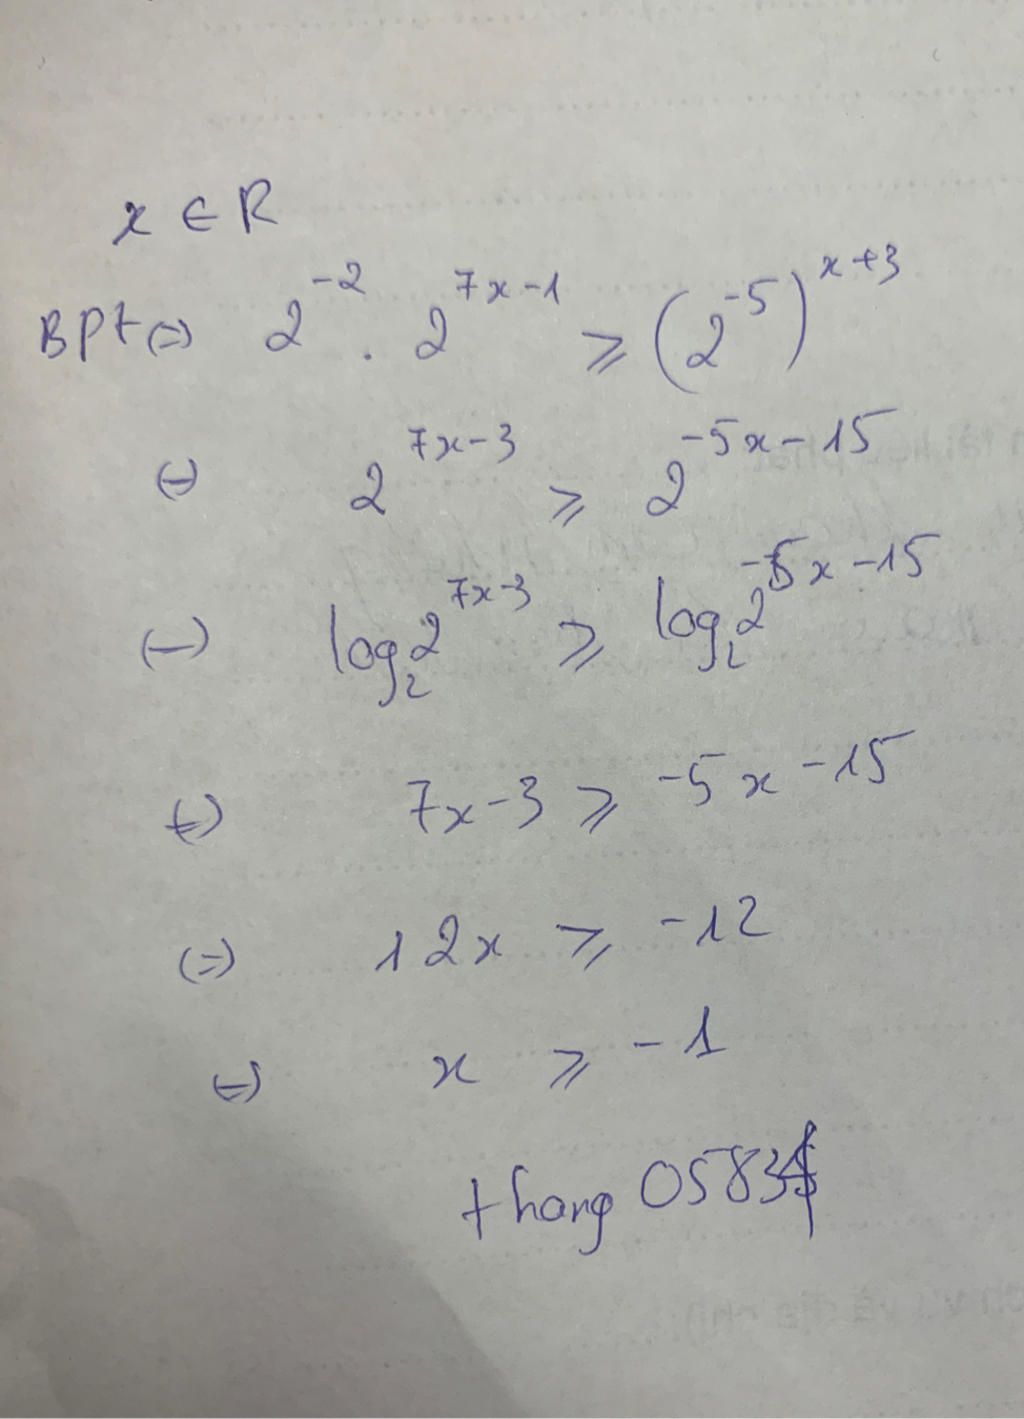 x ∈ R
BPt (=) 2^-2 . 2^7x-1 ⩾ (2^-5)^x+3
(=) 2^7x-3 ⩾ 2^-5x-15
(=) log_2 2^7x-3 ⩾ log_2 2^-5x-15
(=) 7x-3 ⩾ -5x-15
(=) 12x ⩾ -12
(=) x ⩾ -1
thang